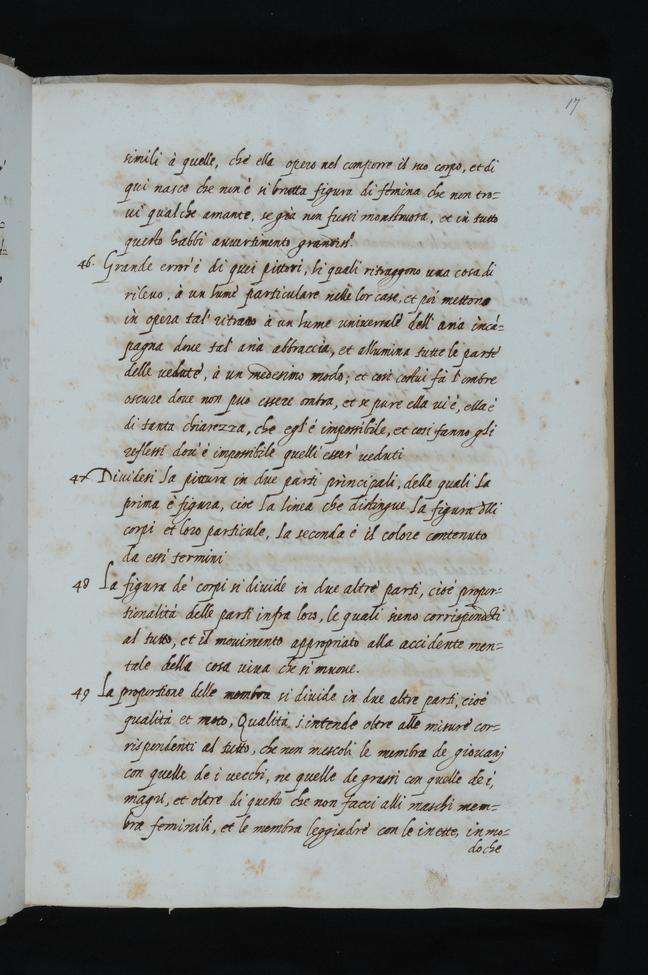 17
simili à quelle, che ella opero nel comporre il suo corpo, et di
qui nasce che non é si brutta figura di femina che non tro=
vi qualche amante, se gia non fussi monstruosa, et in tutto
questo habbi auuertimento grandiss.º
46. Grande error' é di quei pittori, li quali ritraggono una cosa di
rilevo, à un lume particulare nelle lor case, et poi mettono
in opera tal' ritratto à un lume universale dell' aria in cã=
pagna dove tal' aria abbraccia, et allumina tutte le parte
delle vedute, à un medesimo modo; et cosi costui fà l'ombre
oscure dove non puo essere ombra, et se pure ella vi é, ella é
di tanta chiarezza, che egl' é impossibile, et cosi fanno gli
reflessi dov' é impossibile quelli esser' veduti
47 Dividesi la pittura in due parti principali, delle quali la
prima é figura, cioe la linea che distingue la figura dlli
corpi et loro particule, la seconda é il colore contenuto
da essi termini
48 La figura de' corpi si divide in due altre parti, cioé propor=
tionalità delle parti infra loro, le quali sieno corrispondẽti
al tutto, et il movimento appropriato alla accidente men=
tale della cosa viva che si muove.
49 La proportione delle membra si divide in due altre parti, cioé
qualità et moto, Qualità s'intende oltre alle misure cor=
rispondenti al tutto, che non mescoli le membra de giovani
con quelle de i vecchi, ne quelle de grassi con quelle de i,
magri, et oltre di questo che non facci alli maschi mem=
bra feminili, et le membra leggiadre con le inette, in mo=
do che